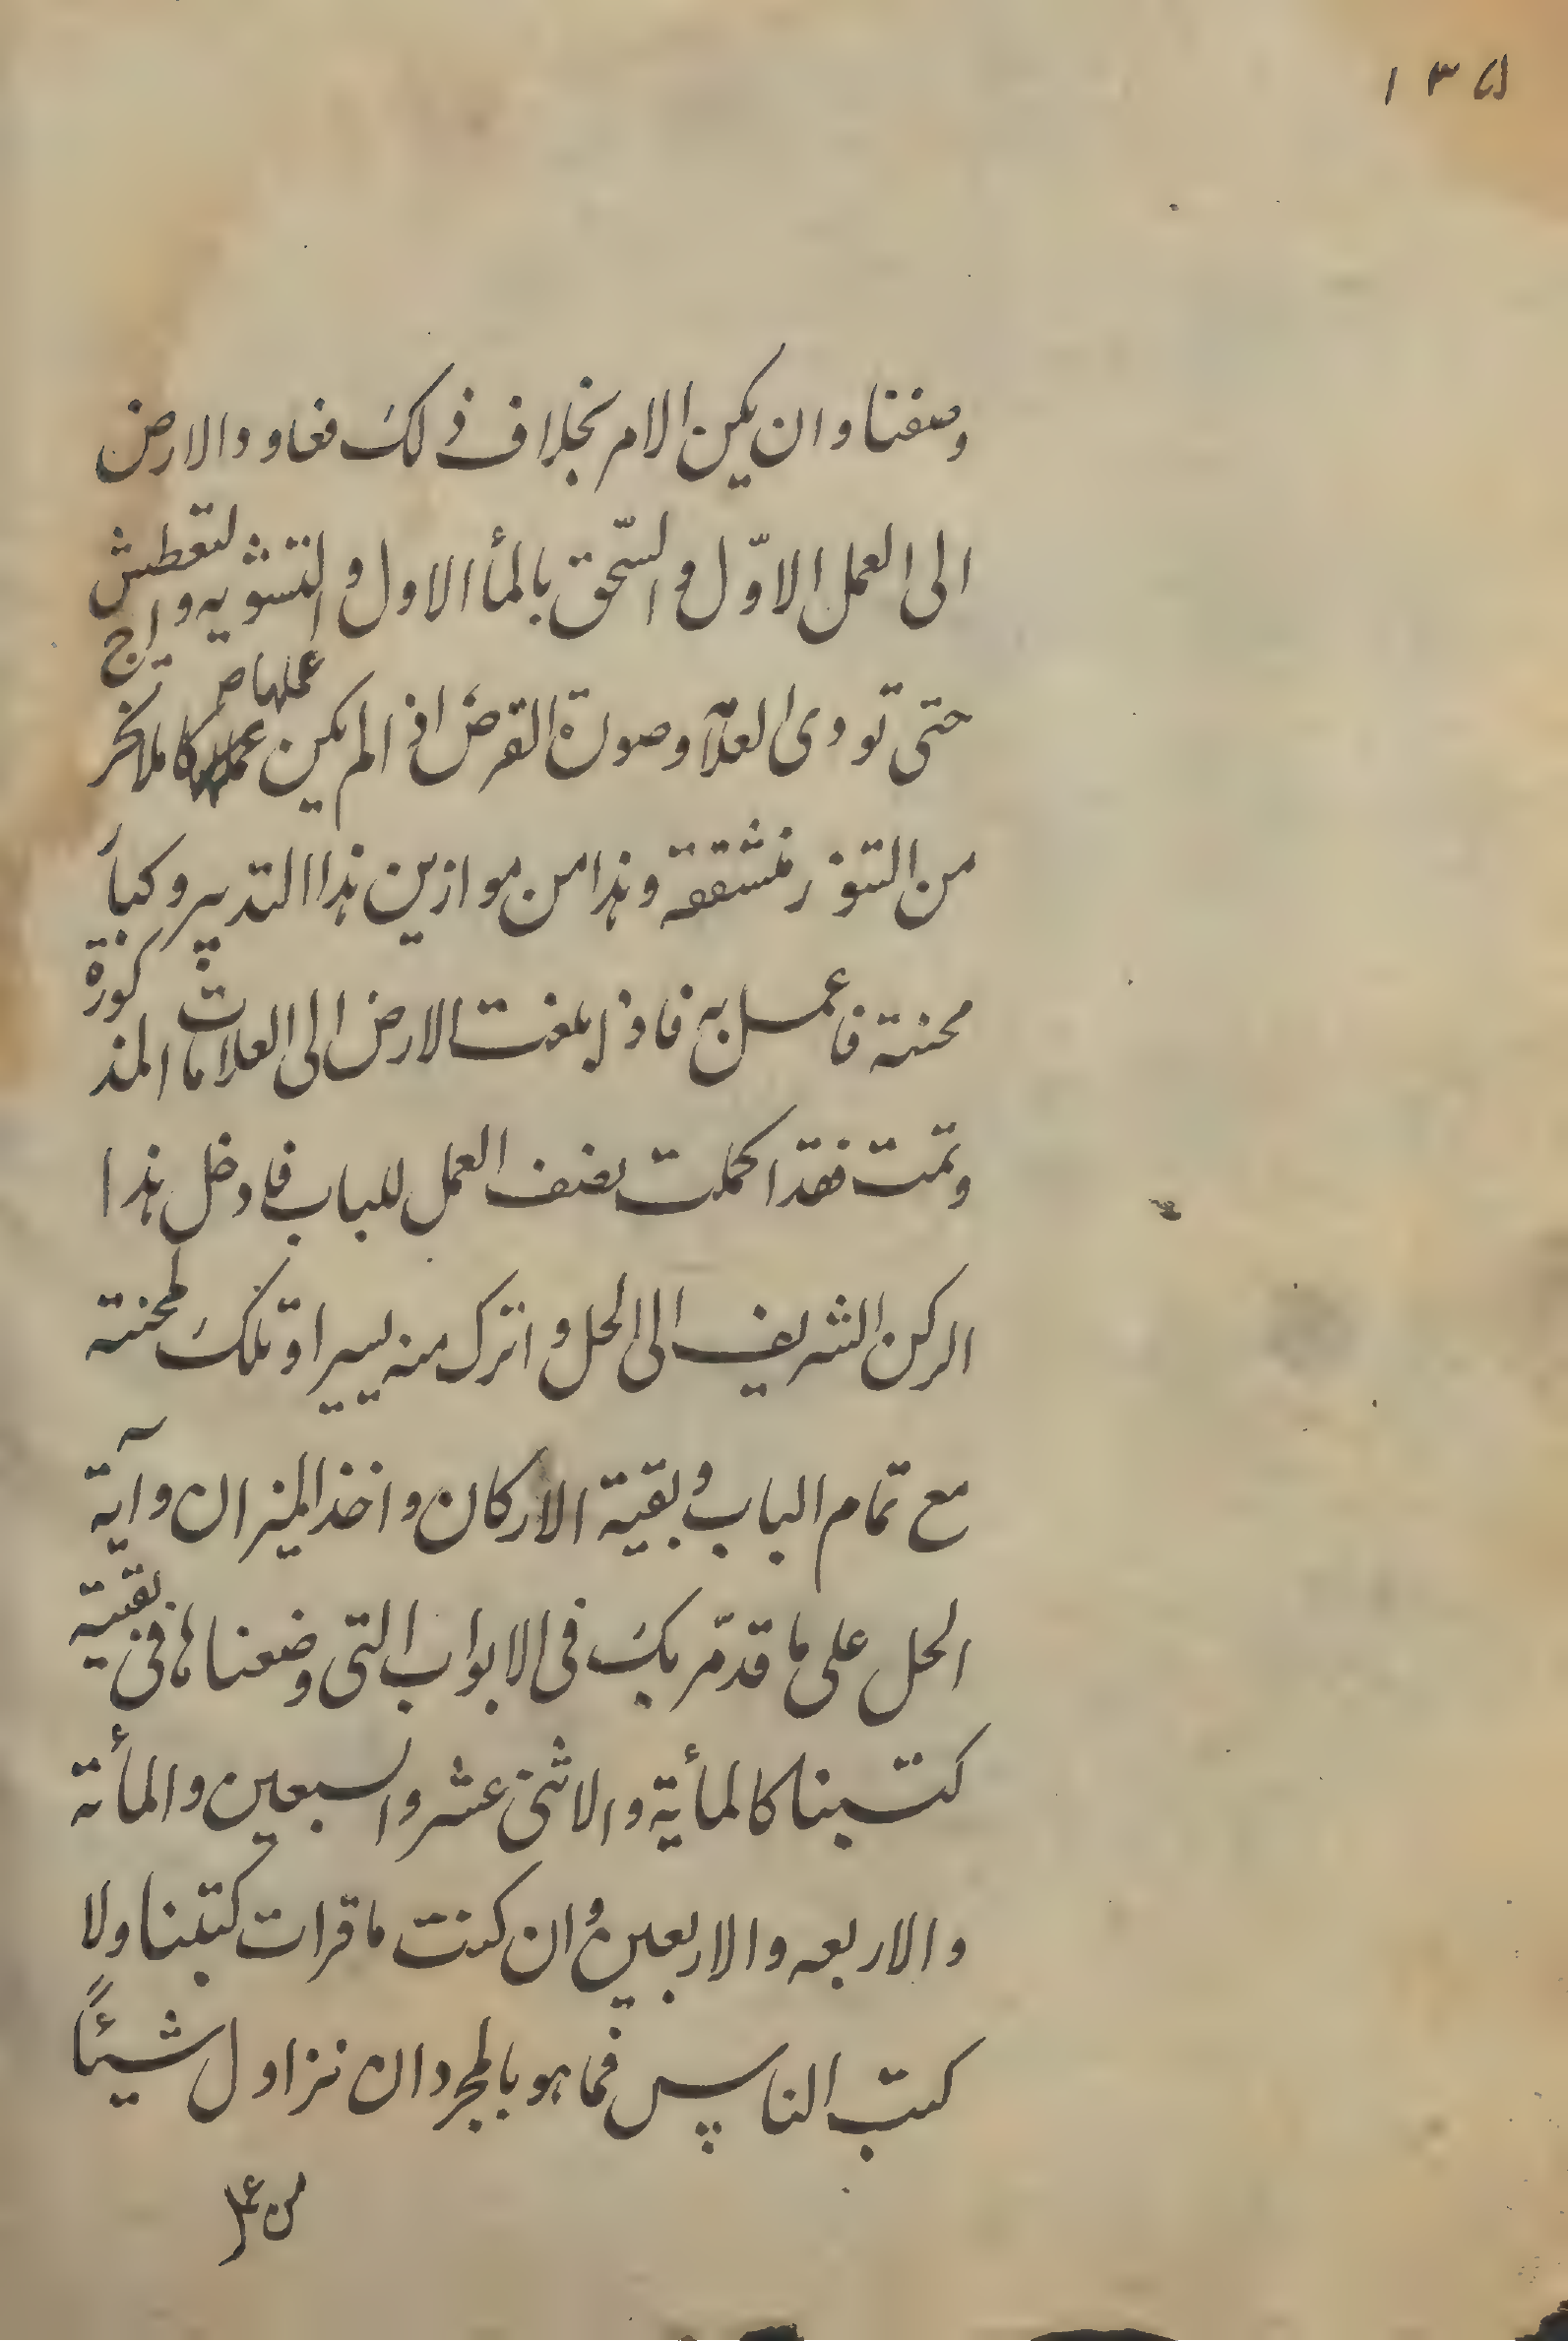 ١٣٥
وصفنا وان يكن الامر بخلاف ذلك فعاود الارض
الى العمل الاوّل والسّحق بالمأ الاول والتشويه والتعطش
حتى تودى العلآ وصورة القرض اذ المريكن عملها صح كاملا تخرج
من التنور منشققة وهذا من موازين هذا التدبير وكبأ
محنته فاعمل به فاذا بلغت الارض الى العلامات المذكورة
وتمت فقد اكملت نصف العمل للباب فادخل هذا
الركن الشريف الى الحل واترك منه يسيرا وتلك لمحنته
مع تمام الباب وبقية الاركان واخذ الميزان وآية
الحل على ما قد مرّ بك فى الابواب التى وضعناها فى بقية
كتبنا كالمأية والاثنى عشر والسبعين والمأة
والاربعه والاربعين وان كنت ما قرات كتبنا ولا
كتب الناس فما هو بالمجرد ان نزاول شيئاً
من عمل